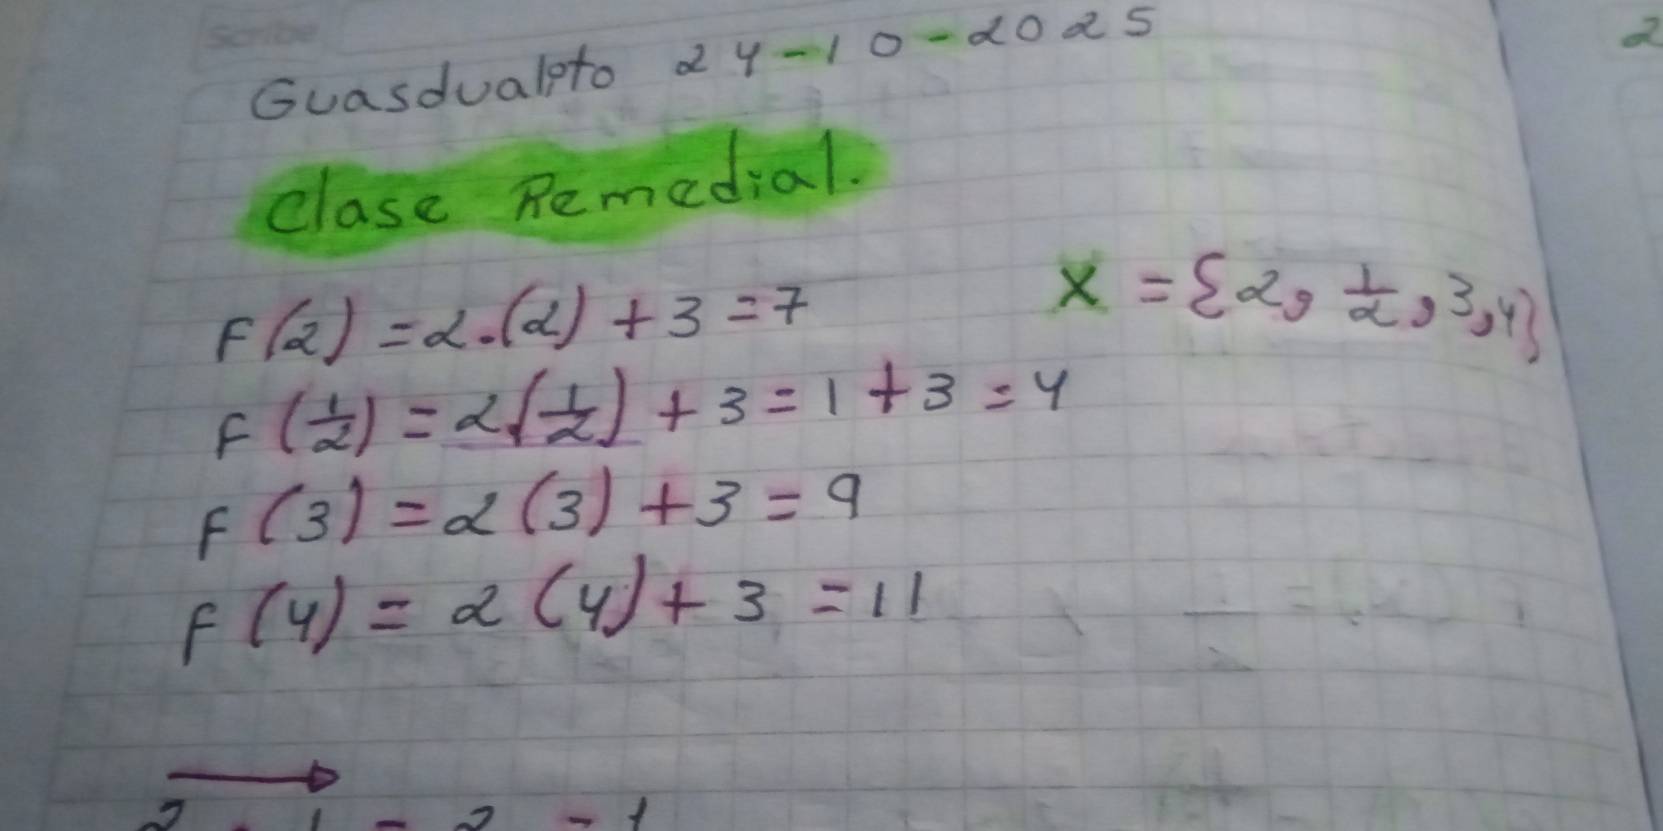 Scribe
Guasdualito 24-10-2025
Clase Remedial.
X = {2, 1/2, 3, 4}
F(2) = 2.(2) + 3 = 7
F(1/2) = 2.(1/2) + 3 = 1 + 3 = 4
F(3) = 2(3) + 3 = 9
F(4) = 2(4) + 3 = 11
2